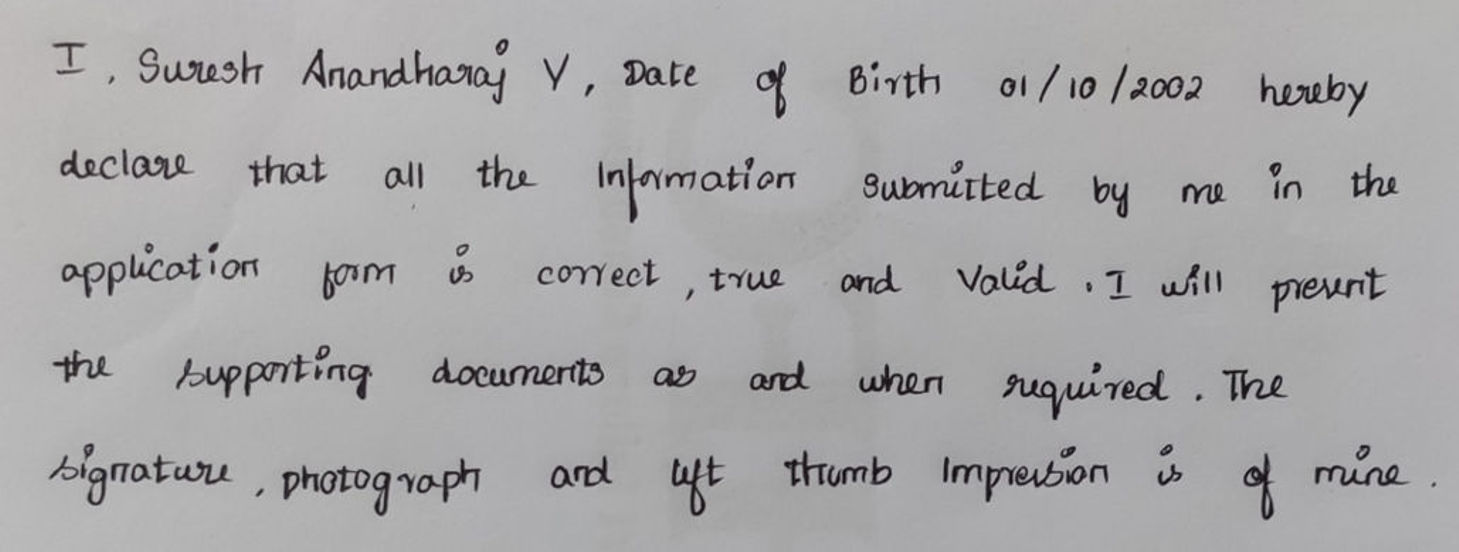 I, Suresh Anandharaj V, Date of Birth 01/10/2002 hereby
declare that all the Information submitted by me in the
application form is correct, true and Valid. I will present
the supporting documents as and when required. The
signature, photograph and left thumb Impression is of mine.